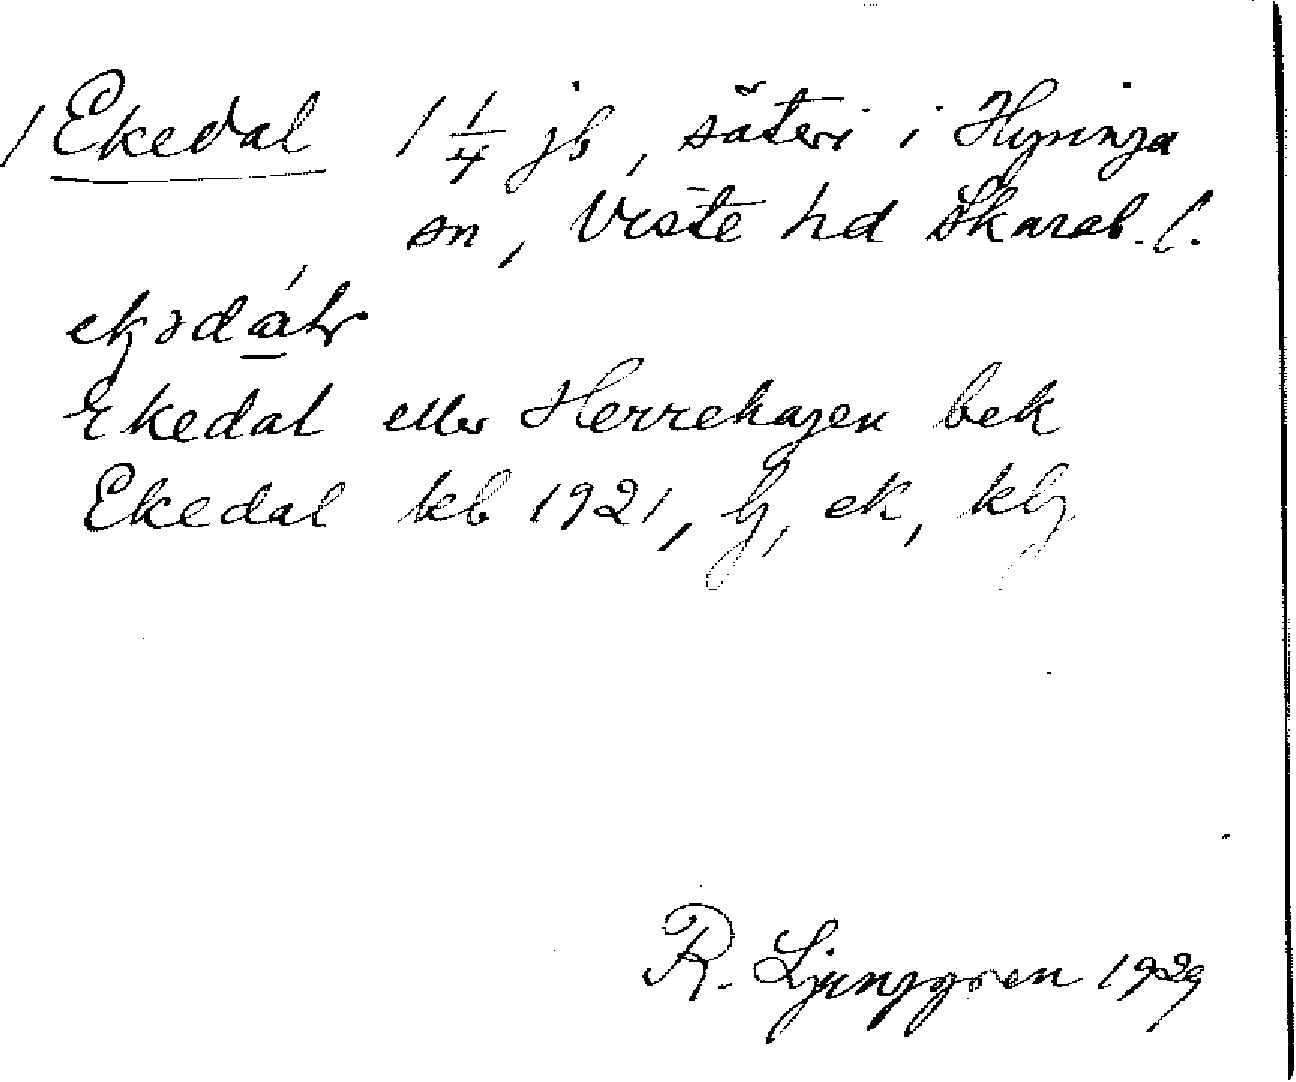 / Ekedal 1 1/4 jb, säteri i Hyringa
sn, Viste hd Skarab. l.
Ekedal eller Herrehagen bek
Ekedal kb 1921, lj, ek, klg
R. Ljunggren 1929